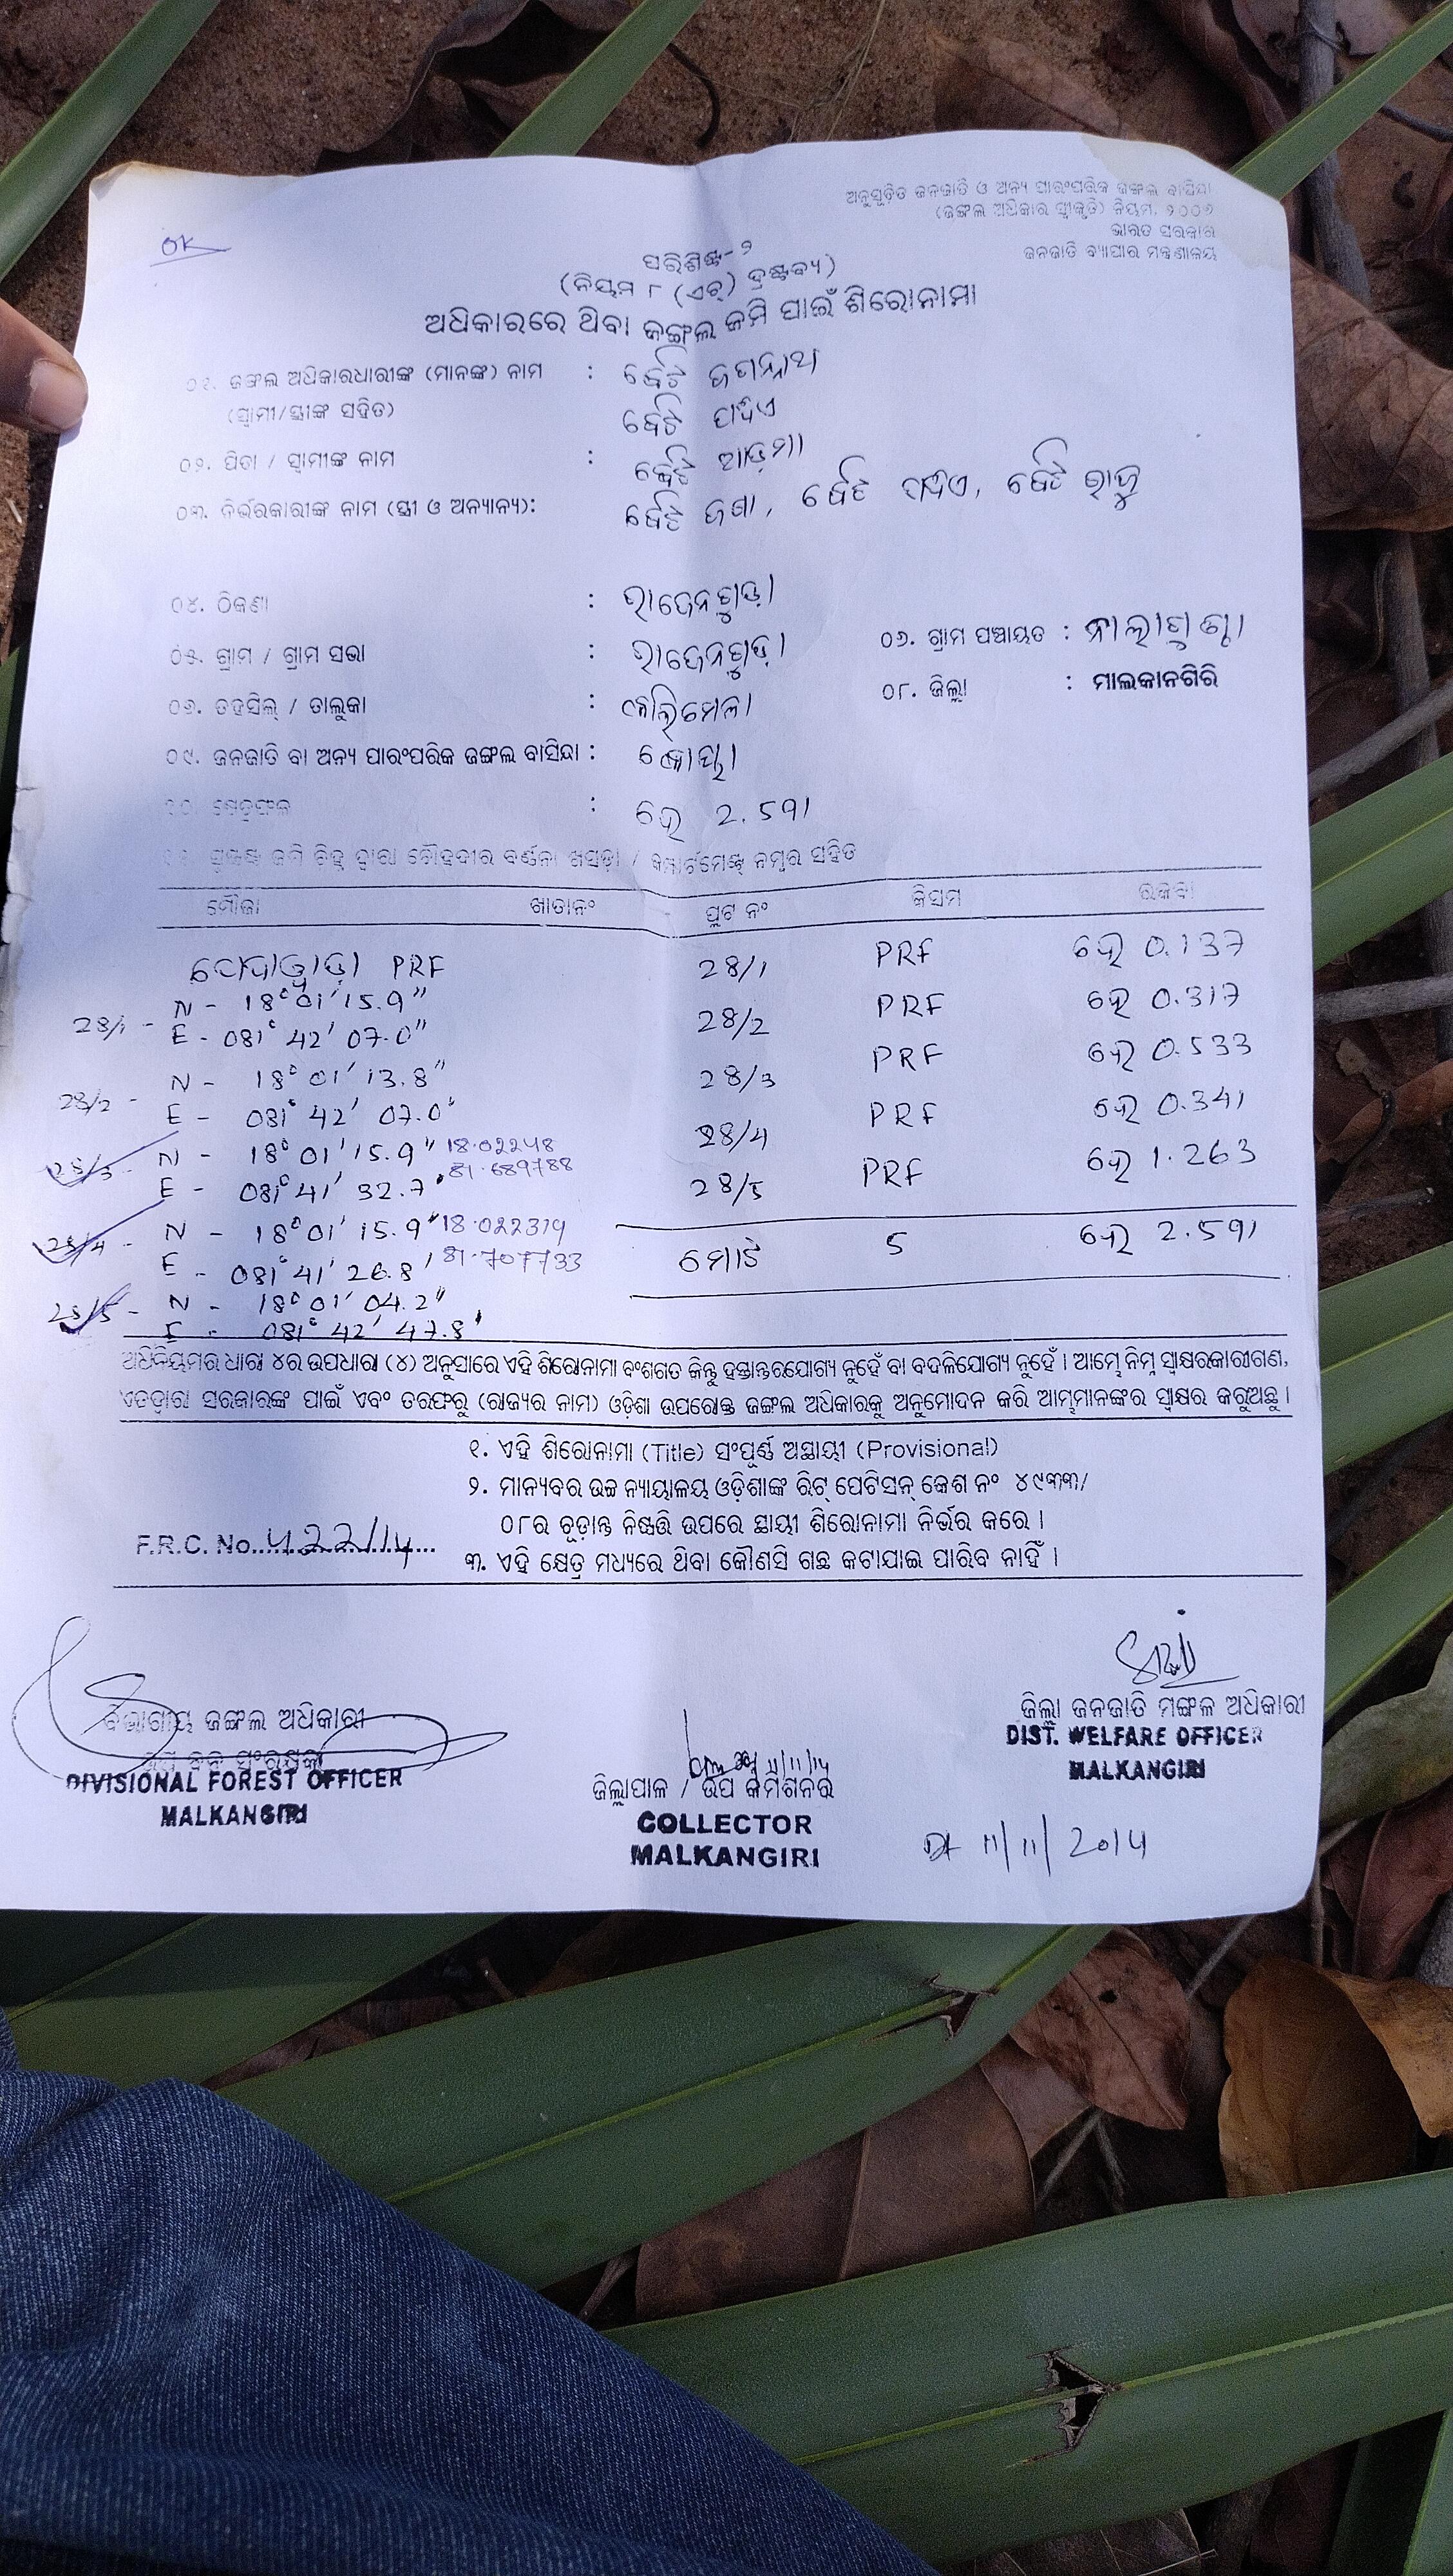 ଅନୁସୂଚିତ ଜନଜାତି ଓ ଅନ୍ୟ ପାରଂପରିକ ଜଙ୍ଗଲ ବାସିନ୍ଦା
(ଜଙ୍ଗଲ ଅଧିକାର ସ୍ୱୀକୃତି) ନିୟମ, ୨୦୦୬
ଭାରତ ସରକାର
ଜନଜାତି ବ୍ୟାପାର ମନ୍ତ୍ରଣାଳୟ
OK
ପରିଶିଷ୍ଟ-୨
(ନିୟମ ୮ (ଏଚ୍) ଦ୍ରଷ୍ଟବ୍ୟ)
ଅଧିକାରରେ ଥିବା ଜଙ୍ଗଲ ଜମି ପାଇଁ ଶିରୋନାମା
୦୧. ଜଙ୍ଗଲ ଅଧିକାରଧାରୀଙ୍କ (ମାନଙ୍କ) ନାମ : ଜଗନ୍ନାଥ
(ସ୍ୱାମୀ/ସ୍ତ୍ରୀଙ୍କ ସହିତ)
୦୨. ପିତା / ସ୍ୱାମୀଙ୍କ ନାମ :
୦୩. ନିର୍ଭରକାରୀଙ୍କ ନାମ (ସ୍ତ୍ରୀ ଓ ଅନ୍ୟାନ୍ୟ):
୦୪. ଠିକଣା : ରାଜେନଗୁଡ଼ା
୦୫. ଗ୍ରାମ / ଗ୍ରାମ ସଭା : ରାଜେନଗୁଡ଼ା ୦୬. ଗ୍ରାମ ପଞ୍ଚାୟତ :
୦୭. ତହସିଲ୍ / ତାଲୁକା : କାଲିମେଳା ୦୮. ଜିଲ୍ଲା : ମାଲକାନଗିରି
୦୯. ଜନଜାତି ବା ଅନ୍ୟ ପାରଂପରିକ ଜଙ୍ଗଲ ବାସିନ୍ଦା : କୋୟା
୧୦. କ୍ଷେତ୍ରଫଳ : ହେ 2.591
ଜମି ଚିହ୍ନ ଦ୍ୱାରା ଚୌହଦୀର ବର୍ଣ୍ଣନା ଖସଡ଼ା / କମ୍ପାର୍ଟମେଣ୍ଟ ନମ୍ବର ସହିତ
ମୌଜା ଖାତାନଂ ପ୍ଲଟ ନଂ କିସମ ରକବା
PRF 28/1 PRF ହେ 0.137
28/1 - N - 18° 01' 15.9"
E - 081° 42' 07.0" 28/2 PRF ହେ 0.317
28/2 - N - 18° 01' 13.8" 28/3 PRF ହେ 0.533
E - 081° 42' 07.0"
28/3 - N - 18° 01' 15.9" 18.02248 28/4 PRF ହେ 0.341
E - 081° 41' 32.7" 81.689788 28/5 PRF ହେ 1.263
28/4 - N - 18° 01' 15.9" 18.022319
E - 081° 41' 26.8" 81.707733 ମୋଟ 5 ହେ 2.591
28/5 - N - 18° 01' 04.2"
E - 081° 42' 47.8"
ଅଧିନିୟମର ଧାରା ୪ର ଉପଧାରା (୪) ଅନୁସାରେ ଏହି ଶିରୋନାମା ବଂଶଗତ କିନ୍ତୁ ହସ୍ତାନ୍ତରଯୋଗ୍ୟ ନୁହେଁ ବା ବଦଳିଯୋଗ୍ୟ ନୁହେଁ । ଆମ୍ଭେ ନିମ୍ନ ସ୍ୱାକ୍ଷରକାରୀଗଣ,
ଏତଦ୍ୱାରା ସରକାରଙ୍କ ପାଇଁ ଏବଂ ତରଫରୁ (ରାଜ୍ୟର ନାମ) ଓଡ଼ିଶା ଉପରୋକ୍ତ ଜଙ୍ଗଲ ଅଧିକାରକୁ ଅନୁମୋଦନ କରି ଆମ୍ଭମାନଙ୍କର ସ୍ୱାକ୍ଷର କରୁଅଛୁ ।
୧. ଏହି ଶିରୋନାମା (Title) ସଂପୂର୍ଣ୍ଣ ଅସ୍ଥାୟୀ (Provisional)
୨. ମାନ୍ୟବର ଉଚ୍ଚ ନ୍ୟାୟାଳୟ ଓଡ଼ିଶାଙ୍କ ରିଟ୍ ପେଟିସନ୍ କେଶ ନଂ ୪୯୩୩/
୦୮ର ଚୂଡ଼ାନ୍ତ ନିଷ୍ପତ୍ତି ଉପରେ ସ୍ଥାୟୀ ଶିରୋନାମା ନିର୍ଭର କରେ ।
F.R.C. No. 422/14
୩. ଏହି କ୍ଷେତ୍ର ମଧ୍ୟରେ ଥିବା କୌଣସି ଗଛ କଟାଯାଇ ପାରିବ ନାହିଁ ।
ବିଭାଗୀୟ ଜଙ୍ଗଲ ଅଧିକାରୀ
DIVISIONAL FOREST OFFICER
MALKANGIRI
11/11/14
ଜିଲ୍ଲାପାଳ / ଉପ କମିଶନର
COLLECTOR
MALKANGIRI
ଜିଲ୍ଲା ଜନଜାତି ମଙ୍ଗଳ ଅଧିକାରୀ
DIST. WELFARE OFFICER
MALKANGIRI
Dt 11/11/2014